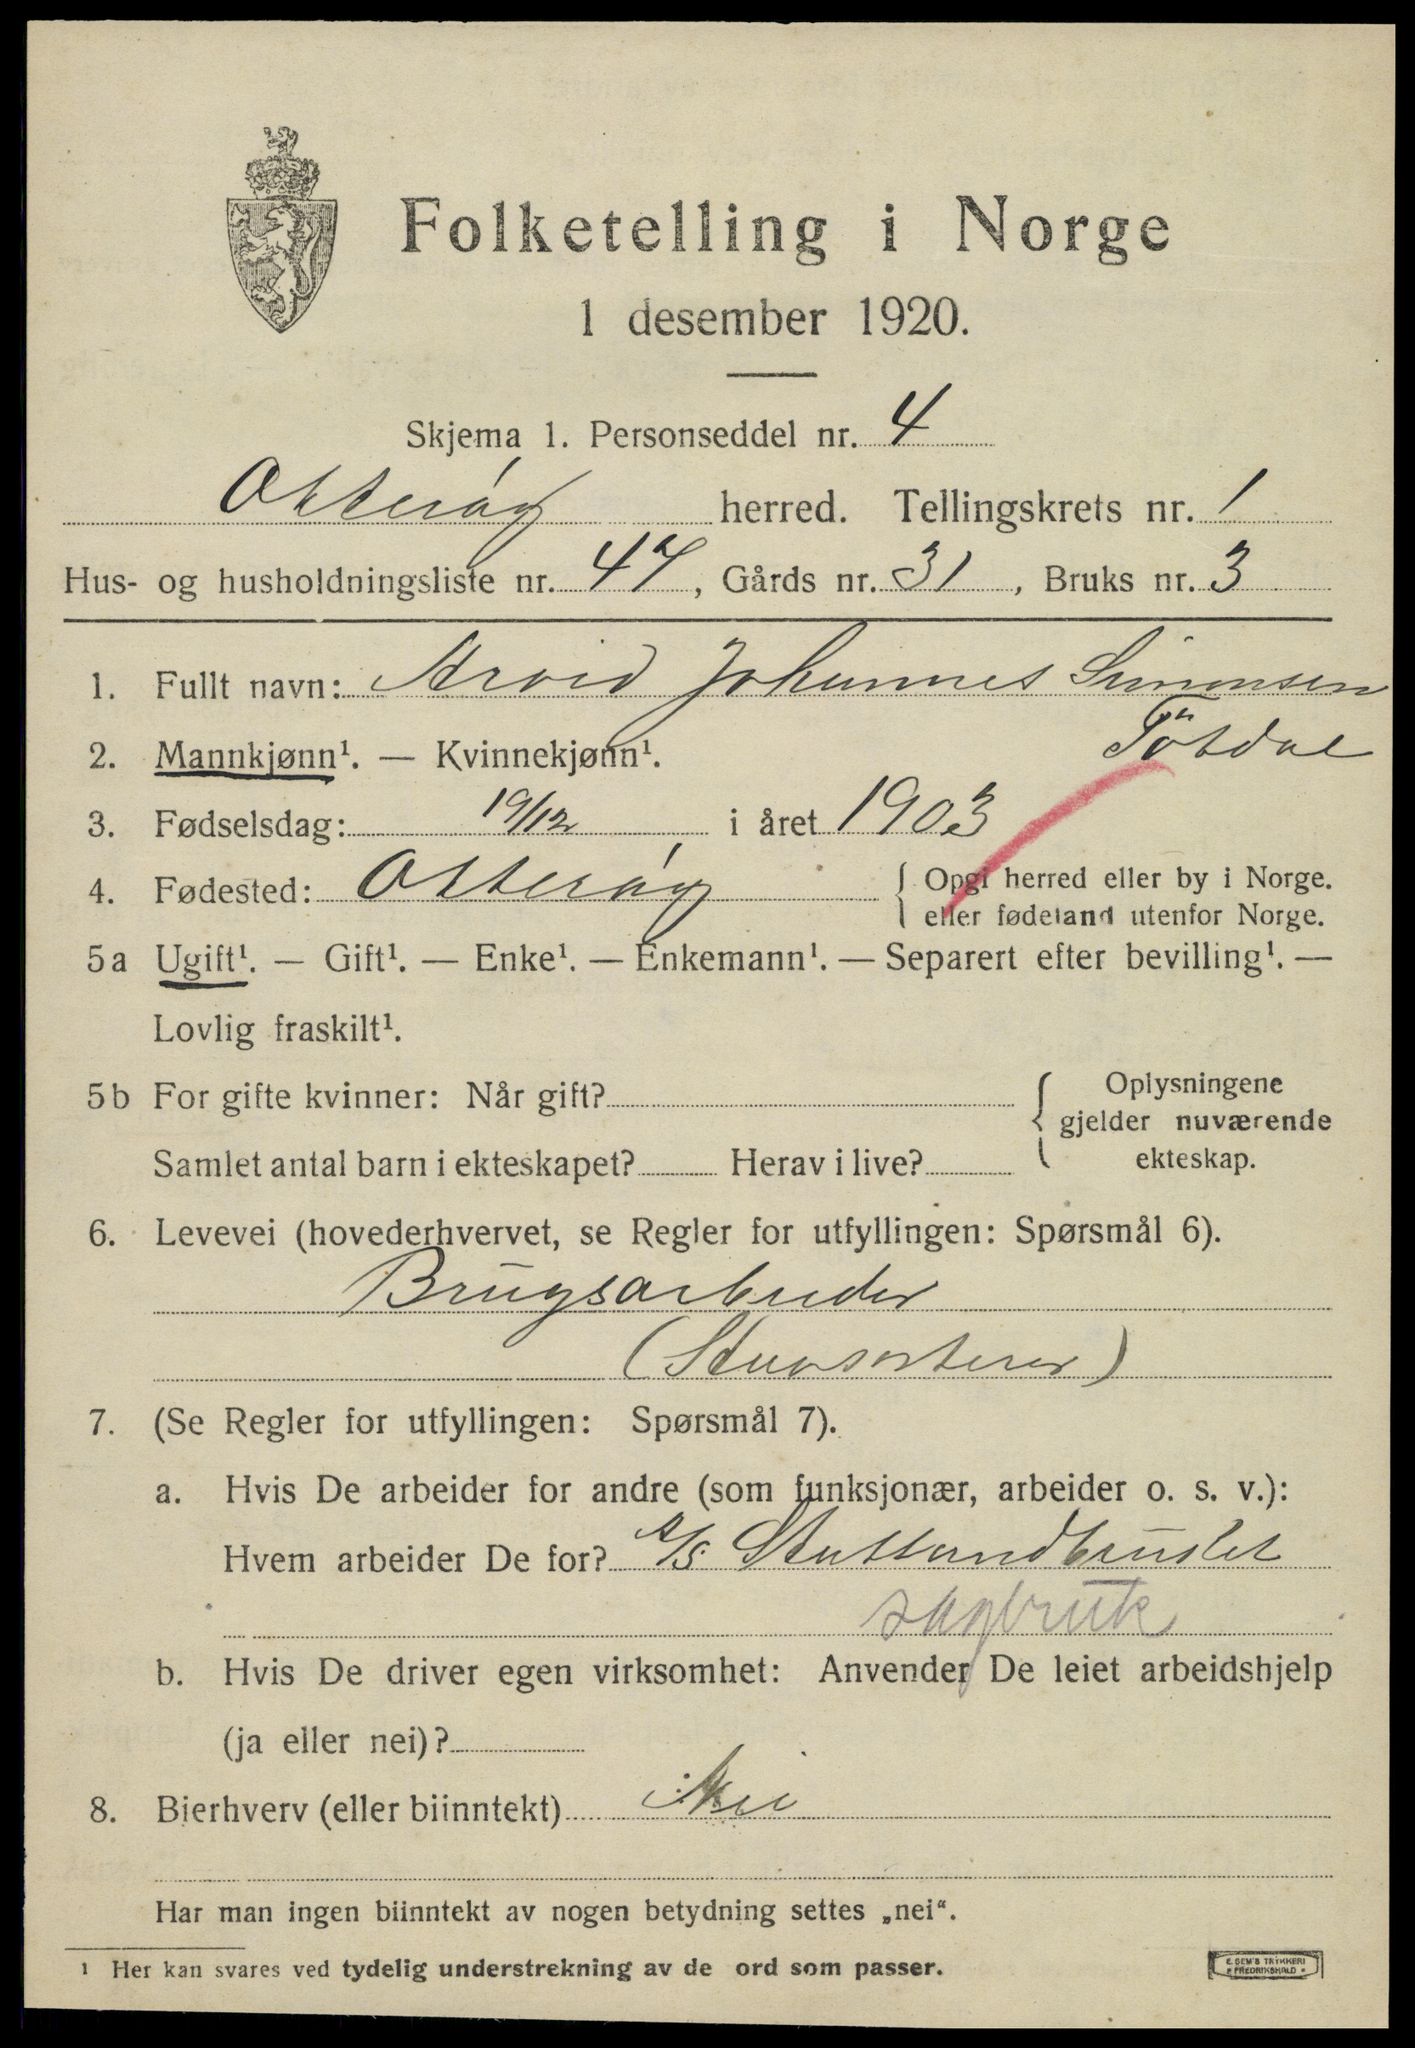 Folketelling i Norge
1 desember 1920.
Skjema 1. Personseddel nr. 4
Otterøy herred. Tellingskrets nr. 1
Hus- og husholdningsliste nr. 47, Gårds nr. 31, Bruks nr. 3
1. Fullt navn: Arvid Johannes Simonsen
Fötdal
2. Mannkjønn¹. — Kvinnekjønn¹.
3. Fødselsdag: 19/12 i året 1903
4. Fødested: Otterøy { Opgi herred eller by i Norge.
eller fødeland utenfor Norge.
5a Ugift¹. — Gift¹. — Enke¹. — Enkemann¹. — Separert efter bevilling¹. —
Lovlig fraskilt¹.
5b For gifte kvinner: Når gift? { Oplysningene
gjelder nuværende
Samlet antal barn i ekteskapet? Herav i live? ekteskap.
6. Levevei (hovederhvervet, se Regler for utfyllingen: Spørsmål 6).
Brugsarbeider
(Stavsorterer)
7. (Se Regler for utfyllingen: Spørsmål 7).
a. Hvis De arbeider for andre (som funksjonær, arbeider o. s. v.):
Hvem arbeider De for? A/S. Statlandbruket
sagbruk
b. Hvis De driver egen virksomhet: Anvender De leiet arbeidshjelp
(ja eller nei)?
8. Bierhverv (eller biinntekt) Nei
Har man ingen biinntekt av nogen betydning settes „nei“.
¹ Her kan svares ved tydelig understrekning av de ord som passer.
E. SEM'S TRYKKERI
FREDRIKSHALD